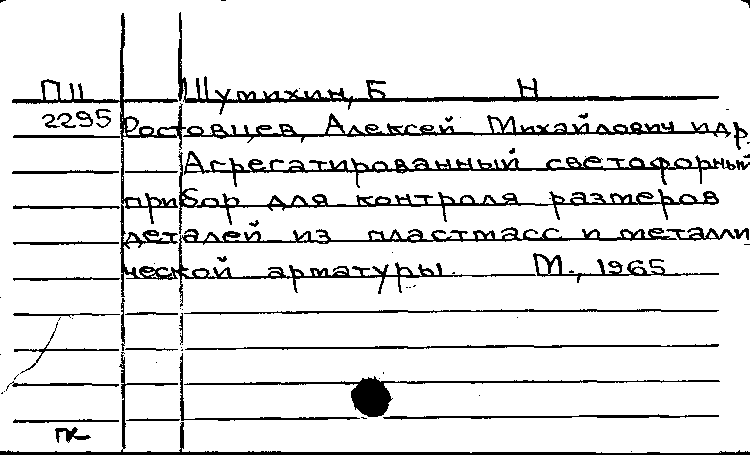 П11 Шумихин, Б Н
2295 Ростовцев, Алексей Михайлович и др
Агрегатированный светофорный
прибор для контроля размеров
деталей из пластмасс и металли
ческой арматуры. М., 1965
ГК